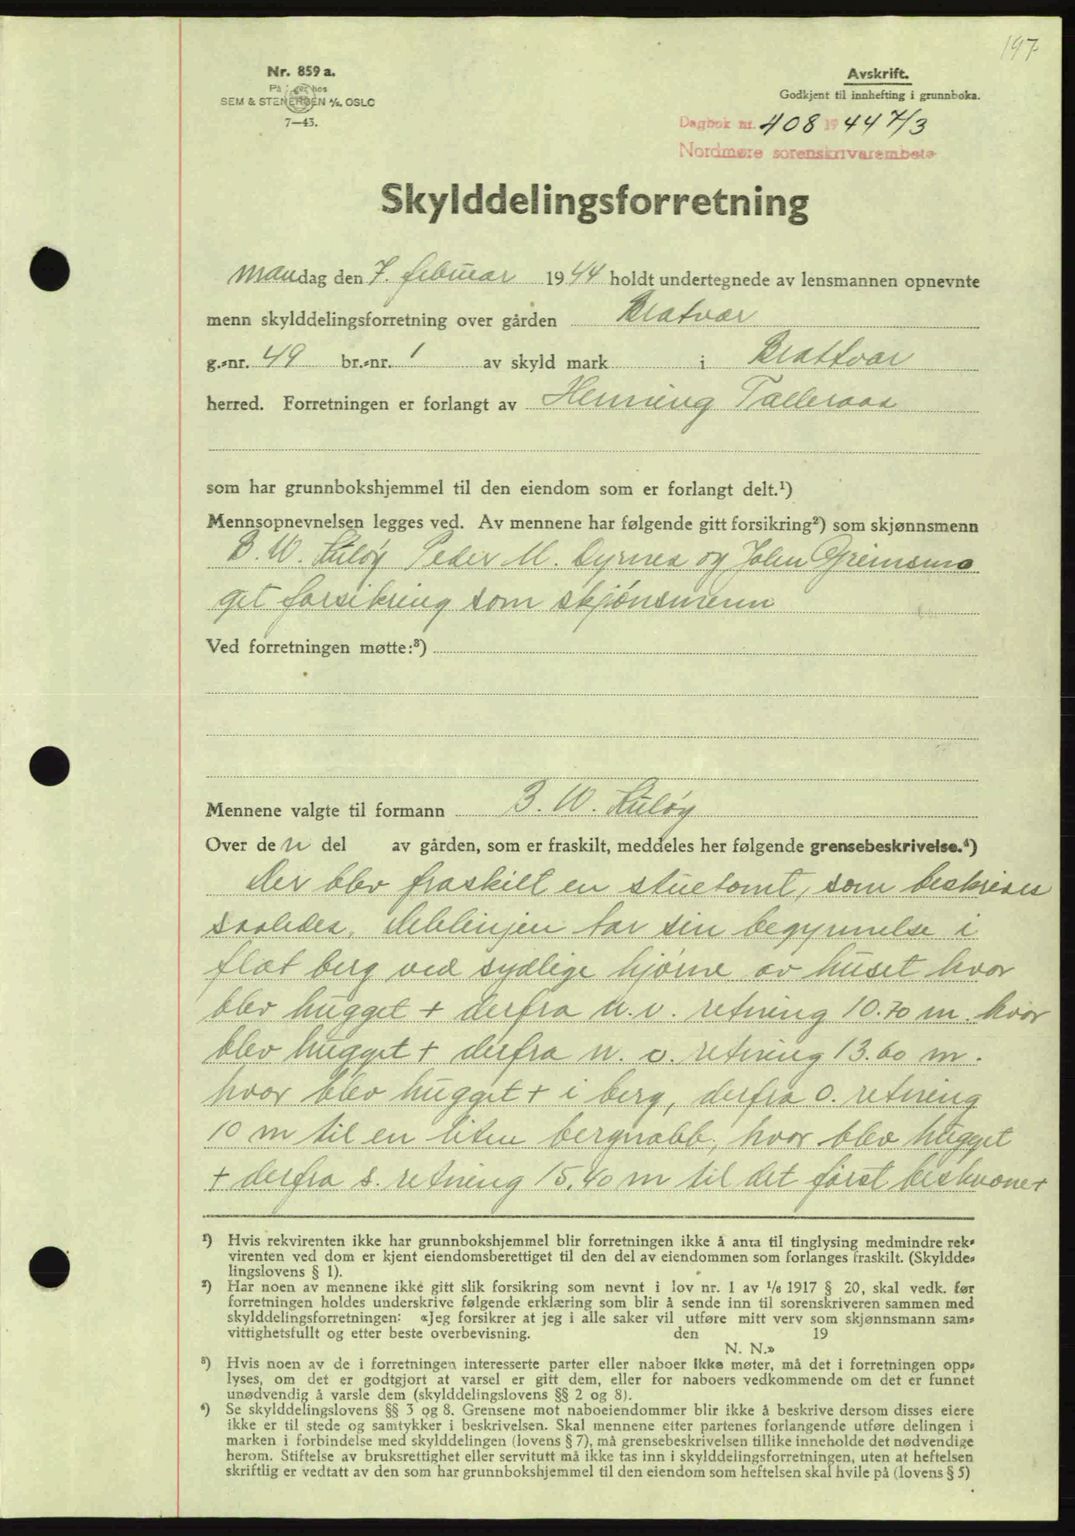 197
Nr. 859 a.
På lager hos
SEM & STENERSEN A/S. OSLO
7—43.
Avskrift.
Godkjent til innhefting i grunnboka.
Dagbok nr. 408 19 44 7/3
Nordmøre sorenskrivarembete
Skylddelingsforretning
mandag den 7. februar 1944 holdt undertegnede av lensmannen opnevnte
menn skylddelingsforretning over gården Bratvær
g.-nr. 49 br.-nr. 1 av skyld mark i Brattvær
herred. Forretningen er forlangt av Henning Talleraas
som har grunnbokshjemmel til den eiendom som er forlangt delt.¹)
Mennsopnevnelsen legges ved. Av mennene har følgende gitt forsikring²) som skjønnsmenn
B. W. Kuløy Peder M. Dyrnes og John Grimsmo
get forsikring som skjönsmenn
Ved forretningen møtte:³)
Mennene valgte til formann B. W. Kuløy
Over den del av gården, som er fraskilt, meddeles her følgende grensebeskrivelse.⁴)
Der blev fraskilt en stuetomt, som beskrives
saaledes. Delelinjen tar sin begynnelse i
flat berg ved sydlige hjørne av huset hvor
blev hugget + derfra n.v. retning 10.70 m. hvor
blev hugget + derfra n. o. retning 13.60 m.
hvor blev hugget + i berg, derfra o. retning
10 m til en liten bergnabb, hvor blev hugget
+ derfra s. retning 15,40 m til det först beskrevne +
¹) Hvis rekvirenten ikke har grunnbokshjemmel blir forretningen ikke å anta til tinglysing medmindre rek-
virenten ved dom er kjent eiendomsberettiget til den del av eiendommen som forlanges fraskilt. (Skyldde-
lingslovens § 1).
²) Har noen av mennene ikke gitt slik forsikring som nevnt i lov nr. 1 av 1/6 1917 § 20, skal vedk. før
forretningen holdes underskrive følgende erklæring som blir å sende inn til sorenskriveren sammen med
skylddelingsforretningen: «Jeg forsikrer at jeg i alle saker vil utføre mitt verv som skjønnsmann sam-
vittighetsfullt og etter beste overbevisning. den 19
N. N.»
³) Hvis noen av de i forretningen interesserte parter eller naboer ikke møter, må det i forretningen opp-
lyses, om det er godtgjort at varsel er gitt dem, eller for naboers vedkommende om det er funnet
unødvendig å varsle dem (skylddelingslovens §§ 2 og 8).
⁴) Se skylddelingslovens §§ 3 og 8. Grensene mot naboeiendommer blir ikke å beskrive dersom disses eiere
ikke er til stede og samtykker i beskrivelsen. Skal mennene etter partenes forlangende utføre delingen i
marken i forbindelse med skylddelingen (lovens § 7), må grensebeskrivelsen tillike inneholde det nødvendige
herom. Stiftelse av bruksrettighet eller servitutt må ikke tas inn i skylddelingsforretningen, uten at heftelsen
skriftlig er vedtatt av den som har grunnbokshjemmel til den eiendom som heftelsen skal hvile på (lovens § 5)